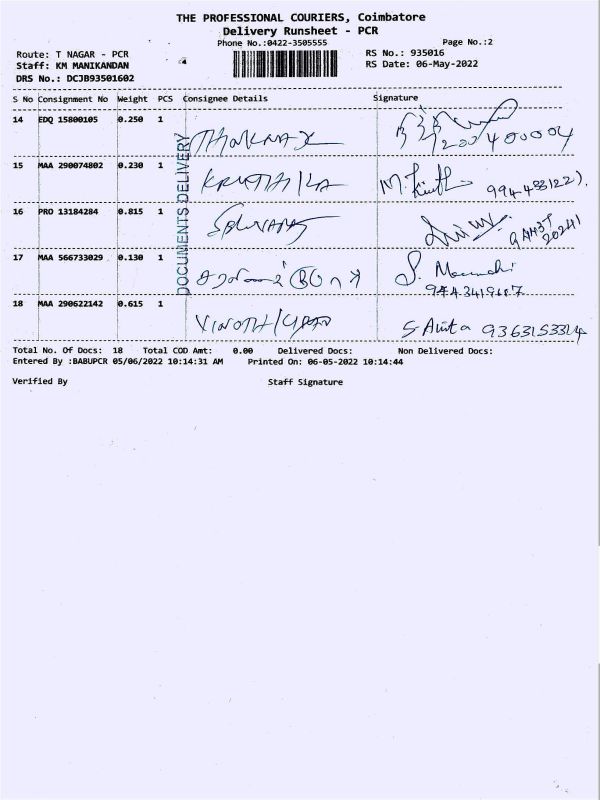 THE PROFESSIONAL COURIERS, Coimbatore
Delivery Runsheet - PCR
Phone No.:0422-3505555 Page No.:2
Route: T NAGAR - PCR RS No.: 935016
Staff: KM MANIKANDAN RS Date: 06-May-2022
DRS No.: DCJB93501602
S No Consignment No Weight PCS Consignee Details Signature
DOCUMENTS DELIVERY
14 EDQ 15800105 0.250 1
15 MAA 290074802 0.230 1 KRUTHIKA
16 PRO 13184284 0.815 1
17 MAA 566733029 0.130 1
18 MAA 290622142 0.615 1 9363153314
Total No. Of Docs: 18 Total COD Amt: 0.00 Delivered Docs: Non Delivered Docs:
Entered By :BABUPCR 05/06/2022 10:14:31 AM Printed On: 06-05-2022 10:14:44
Verified By Staff Signature